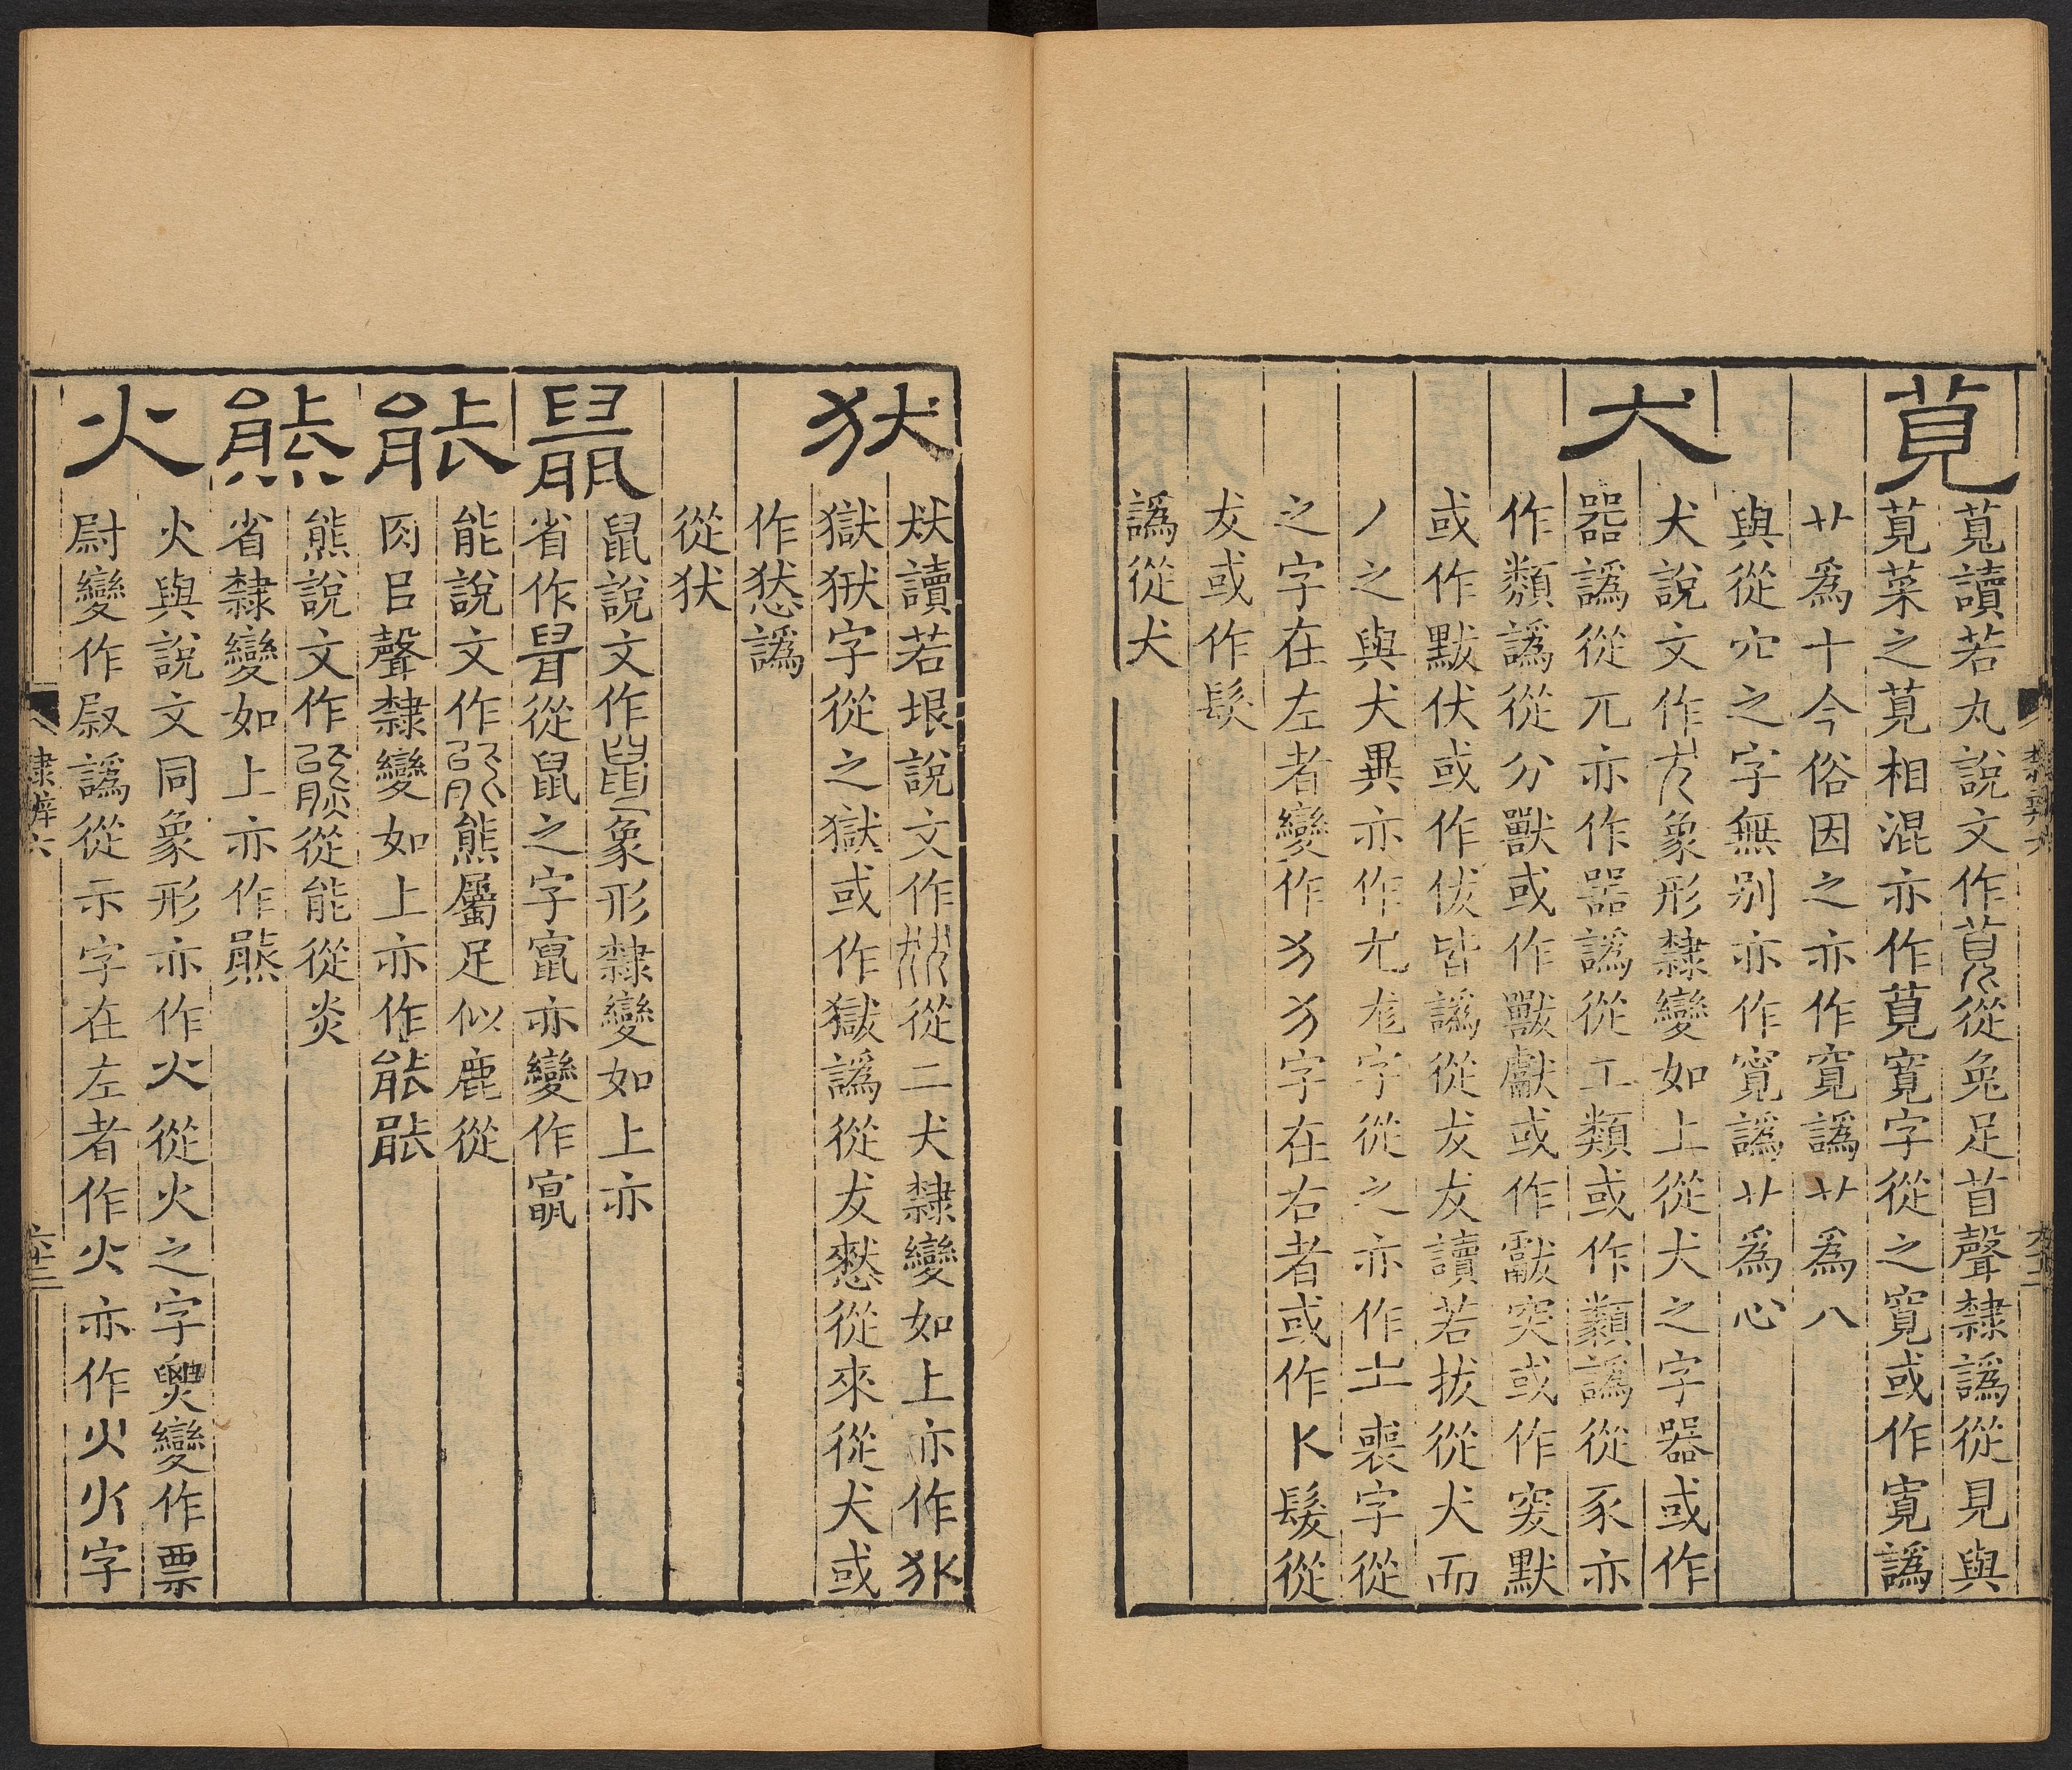 萈
萈讀若丸說文作萈從兔足苜聲隸譌從見與
莧菜之莧相混亦作莧寬字從之寬或作寛譌
艹爲十今俗因之亦作寛譌艹爲八
與從穴之字無别亦作寛譌艹爲心
犬
犬說文作犬象形隸變如上從犬之字器或作
器譌從兀亦作噐譌從工類或作類譌從豕亦
作類譌從分獸或作獸獻或作獻突或作突默
或作默伏或作伏皆譌從犮犮讀若拔從犬而
丿之與犬異亦作尢尨字從之亦作𠀉喪字從
之字在左者變作犭犭字在右者或作髮從
犮或作髮
譌從犬
㹜
㹜讀若垠說文作㹜從二犬隸變如上亦作㹜
獄㹜字從之獄或作獄譌從犮憖從來從犬或
作憖譌
從㹜
鼠
鼠說文作鼠象形隸變如上亦
省作鼠從鼠之字竄亦變作竄
能
能說文作能熊屬足似鹿從
肉㠯聲隸變如上亦作能能
熊
熊說文作熊從能從炎
省隸變如上亦作熊
火
火與說文同象形亦作火從火之字㷠變作票
尉變作尉譌從示字在左者作火亦作火火字
隸辨六
六十二